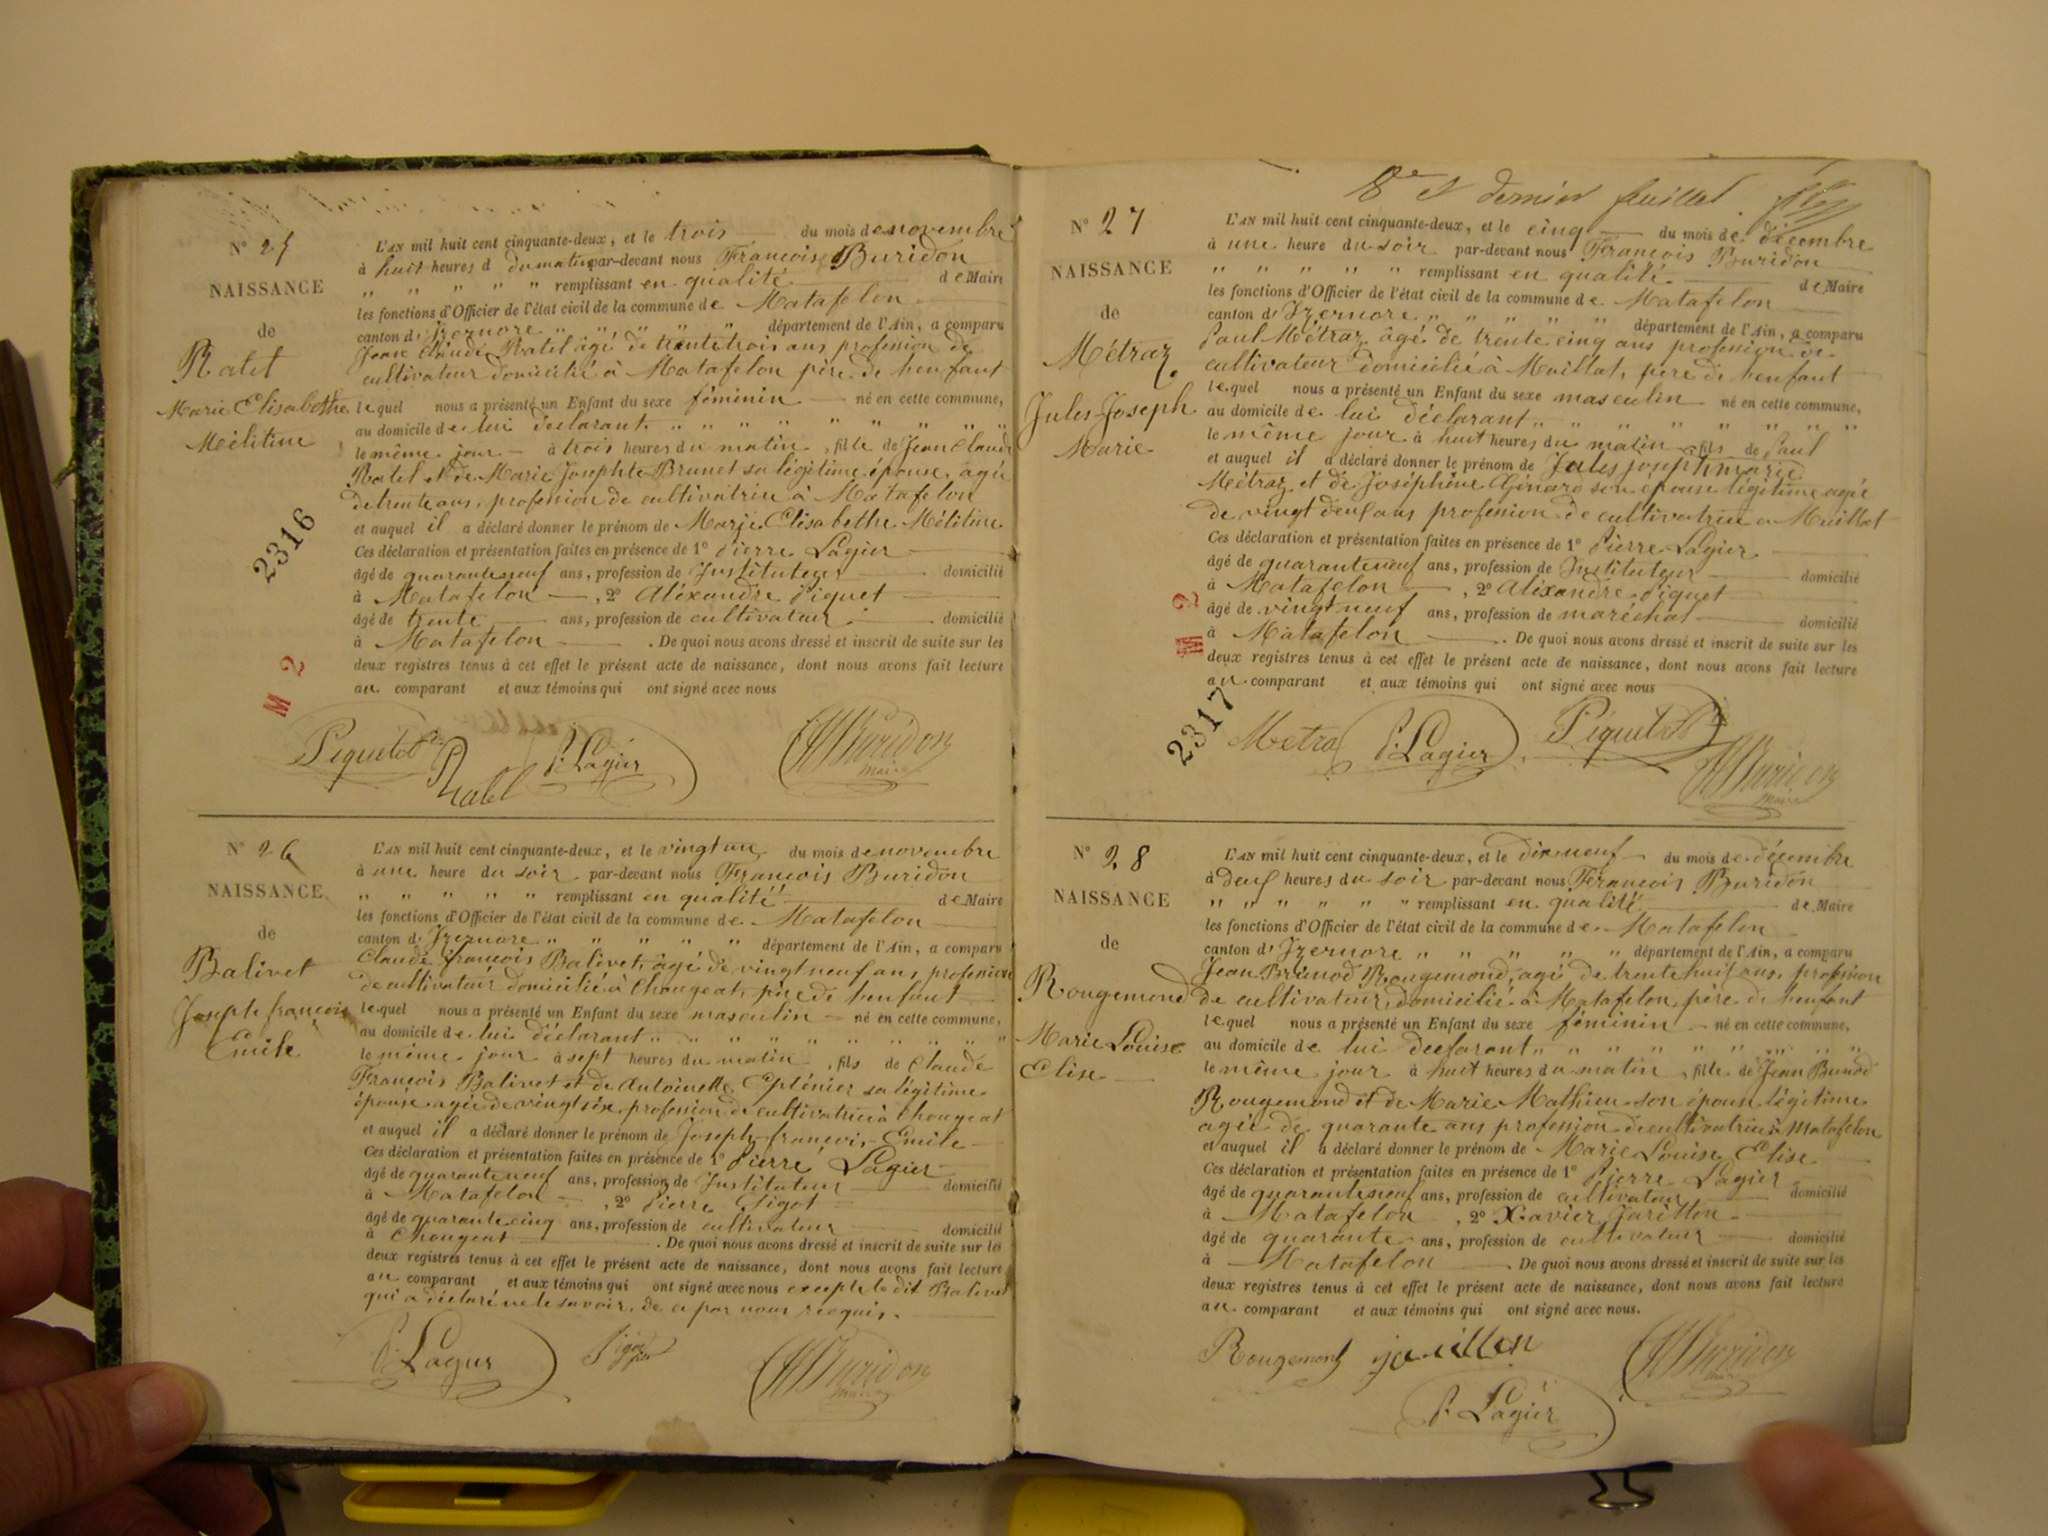 N° 25
NAISSANCE
de
Ratel
Marie Elisabethe
Mélitine
L'AN mil huit cent cinquante-deux, et le trois du mois de novembre
à huit heures d du matin par-devant nous François Buridon
" " " " " remplissant en qualité de Maire
les fonctions d'Officier de l'état civil de la commune de Matafelon
canton d'Izernore " " " " " département de l'Ain, a comparu
Jean Claude Ratel âgé de trente trois ans profession de
cultivateur domicilié à Matafelon père de l'enfant
lequel nous a présenté un Enfant du sexe féminin né en cette commune,
au domicile de lui déclarant " " " " " " "
le même jour à trois heures du matin, fille de Jean Claude
Ratel et de Marie Josephte Brunet sa légitime épouse, âgée
de trente ans, profession de cultivatrice à Matafelon
et auquel il a déclaré donner le prénom de Marie Elisabethe Mélitine
Ces déclaration et présentation faites en présence de 1° Pierre Lagier
âgé de quarante neuf ans, profession de Instituteur domicilié
à Matafelon, 2° Aléxandre Piquet
âgé de trente ans, profession de cultivateur domicilié
à Matafelon. De quoi nous avons dressé et inscrit de suite sur les
deux registres tenus à cet effet le présent acte de naissance, dont nous avons fait lecture
au comparant et aux témoins qui ont signé avec nous
2316
M 2
Piquet Ratel P. Lagier Buridon
maire
N° 26
NAISSANCE
de
Balivet
Joseph françois
Emile
L'AN mil huit cent cinquante-deux, et le vingt un du mois de novembre
à une heure du soir par-devant nous François Buridon
" " " " " remplissant en qualité de Maire
les fonctions d'Officier de l'état civil de la commune de Matafelon
canton d'Izernore " " " " " département de l'Ain, a comparu
Claude françois Balivet, âgé de vingt neuf ans, profession
de cultivateur domicilié à Chougeat, père de l'enfant
lequel nous a présenté un Enfant du sexe masculin né en cette commune,
au domicile de lui déclarant " " " " " " " "
le même jour à sept heures du matin, fils de Claude
François Balivet et de Antoinette sa légitime
épouse agée de vingt six, profession de cultivatrice à Chougeat
et auquel il a déclaré donner le prénom de Joseph françois Emile
Ces déclaration et présentation faites en présence de 1° Pierre Lagier
âgé de quarante neuf ans, profession de Instituteur domicilié
à Matafelon, 2° Pierre Sigot
âgé de quarante cinq ans, profession de cultivateur domicilié
à Chougeat. De quoi nous avons dressé et inscrit de suite sur les
deux registres tenus à cet effet le présent acte de naissance, dont nous avons fait lecture
au comparant et aux témoins qui ont signé avec nous excepté le dit Balivet
qui a déclaré ne le savoir, de ce par nous requis.
P. Lagier Buridon
maire
8e et dernier feuillet
N° 27
NAISSANCE
de
Métraz
Jules Joseph
Marie
L'AN mil huit cent cinquante-deux, et le cinq du mois de décembre
à une heure du soir par-devant nous François Buridon
" " " " " remplissant en qualité de Maire
les fonctions d'Officier de l'état civil de la commune de Matafelon
canton d'Izernore " " " " " département de l'Ain, a comparu
Paul Métraz, âgé de trente cinq ans profession de
cultivateur domicilié à Maillat, père de l'enfant
lequel nous a présenté un Enfant du sexe masculin né en cette commune,
au domicile de lui déclarant " " " " " " "
le même jour à huit heures du matin, fils de Paul
et auquel il a déclaré donner le prénom de Jules joseph marie
Métraz et de Joséphine son épouse légitime agée
de vingt deux ans profession de cultivatrice à Maillat
Ces déclaration et présentation faites en présence de 1° Pierre Lagier
âgé de quarante neuf ans, profession de Instituteur domicilié
à Matafelon, 2° Aléxandre Piquet
âgé de vingt neuf ans, profession de maréchal domicilié
à Matafelon. De quoi nous avons dressé et inscrit de suite sur les
deux registres tenus à cet effet le présent acte de naissance, dont nous avons fait lecture
au comparant et aux témoins qui ont signé avec nous
M 2
2317
Metra P. Lagier Piquet Buridon
maire
N° 28
NAISSANCE
de
Rougemond
Marie Louise
Elise
L'AN mil huit cent cinquante-deux, et le dix neuf du mois de décembre
à deux heures du soir par-devant nous François Buridon
" " " " " " remplissant en qualité de Maire
les fonctions d'Officier de l'état civil de la commune de Matafelon
canton d'Izernore " " " " " département de l'Ain, a comparu
Jean Brunod Rougemond, agé de trente huit ans, profession
de cultivateur, domicilié à Matafelon, père de l'enfant
lequel nous a présenté un Enfant du sexe féminin né en cette commune,
au domicile de lui declarant " " " " " " " "
le même jour à huit heures du matin, fille de Jean Brunod
Rougemond et de Marie Mathieu son épouse légitime
agée de quarante ans profession de cultivatrice à Matafelon
et auquel il a déclaré donner le prénom de Marie Louise Elise
Ces déclaration et présentation faites en présence de 1° Pierre Lagier
âgé de quarante neuf ans, profession de cultivateur domicilié
à Matafelon, 2° Xavier Jarillon
âgé de quarante ans, profession de cultivateur domicilié
à Matafelon. De quoi nous avons dressé et inscrit de suite sur les
deux registres tenus à cet effet le présent acte de naissance, dont nous avons fait lecture
au comparant et aux témoins qui ont signé avec nous.
Rougemont jarillon Buridon
P. Lagier